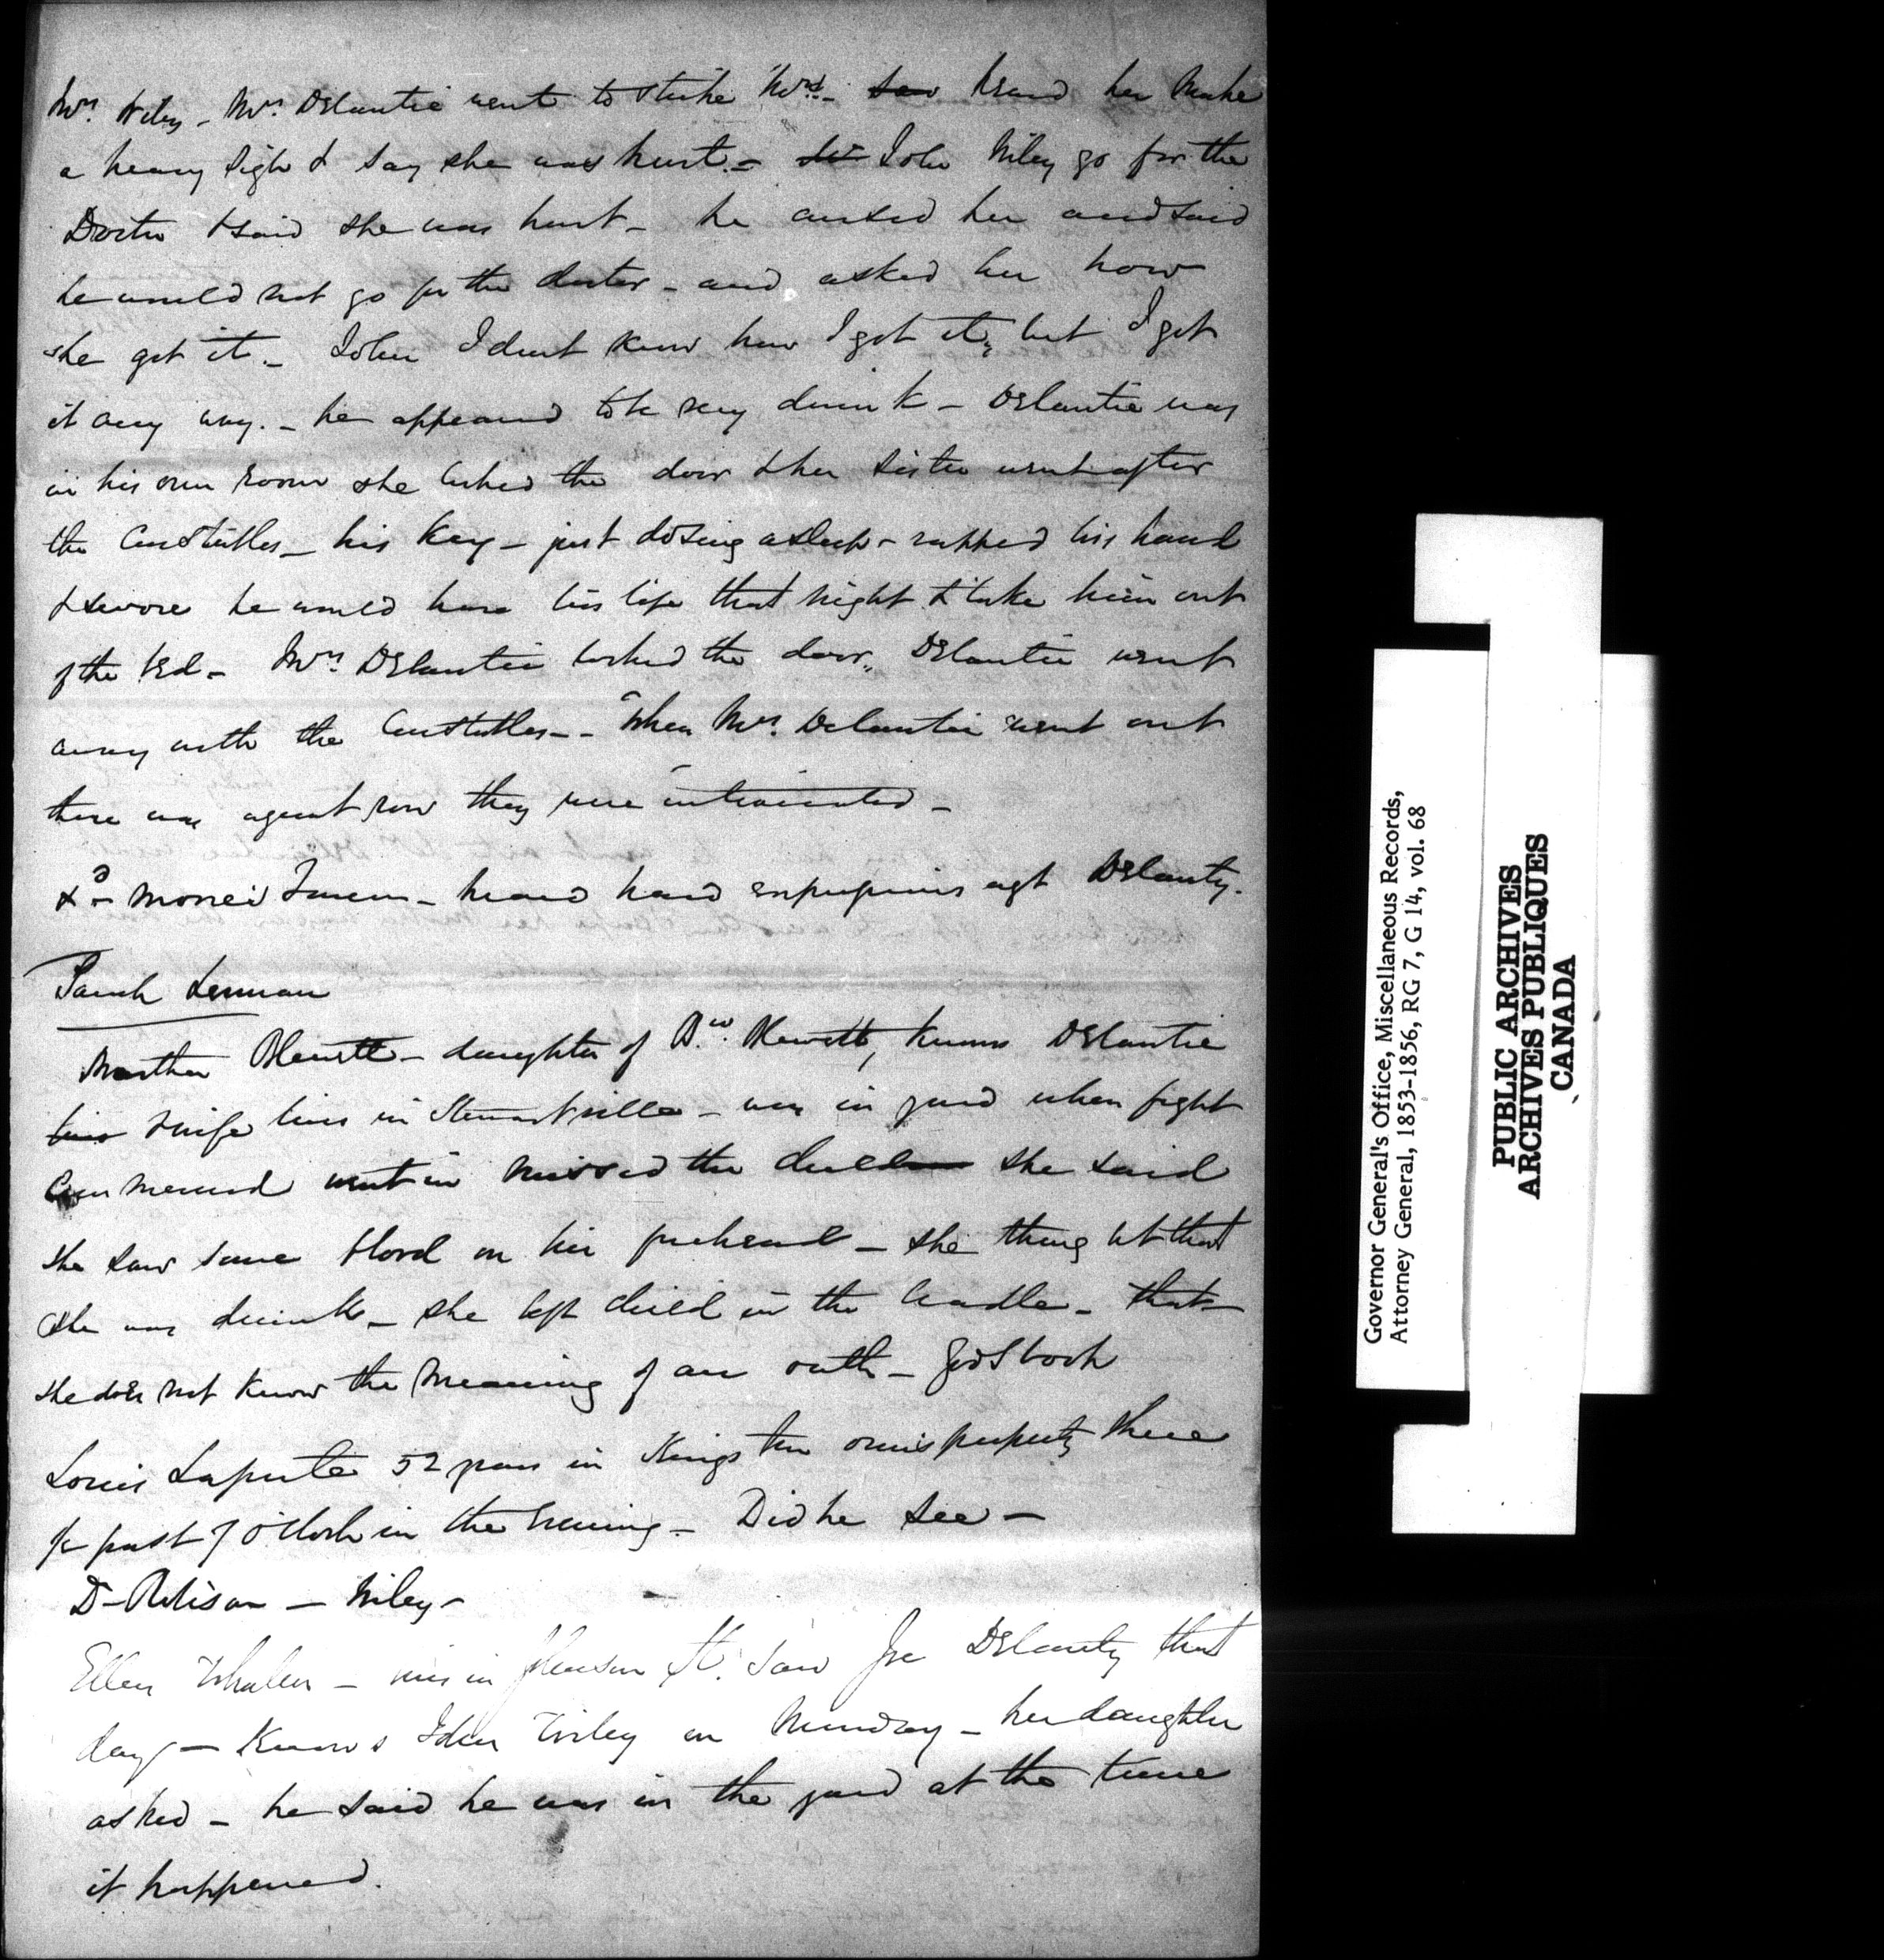 Mrs. Wiley - Mrs. Delantie went to strike Mrs. - saw heard her make
a heavy sigh & say she was hurt. - John Wiley go for the
Doctor & said she was hurt - he cursed her and said
he would not go for the doctor - and asked her how
she got it. - John I dont know how I got it, but I got
it any way. - he appeared to be very drunk - Delantie was
in his own room she locked the door & her sister went after
the Constables - his Key - just dosing asleep - rapped his hand
& swore he would have his life that night & take him out
of the bed - Mrs. Delantie locked the door, Delantie went
away with the Constables - - When Mrs. Delantie went out
there was a great row they were intoxicated -
heard hard expressions agt Delanty.
Sarah Lennan
Martha Hewitt - daughter of Hewitt, knows Delantie
& wife lives in Stewartville - was in yard when fight
Commenced went in missed the child she said
she saw some blood on her forehead - she thought that
she was drunk - she left child in the Cradle - that
she does not know the meaning of an oath - Gods book
Louis Laporte 52 years in Kingston owns property there
1/2 past 7 o'clock in the evening - Did he see -
Dr Robison - Wiley -
Ellen Whalen - lives in St. Saw Joe Delanty that
day - knows John Wiley on Monday - her daughter
asked - he said he was in the yard at the time
it happened.
Governor General's Office, Miscellaneous Records,
Attorney General, 1853-1856, RG 7, G 14, vol. 68
PUBLIC ARCHIVES
ARCHIVES PUBLIQUES
CANADA